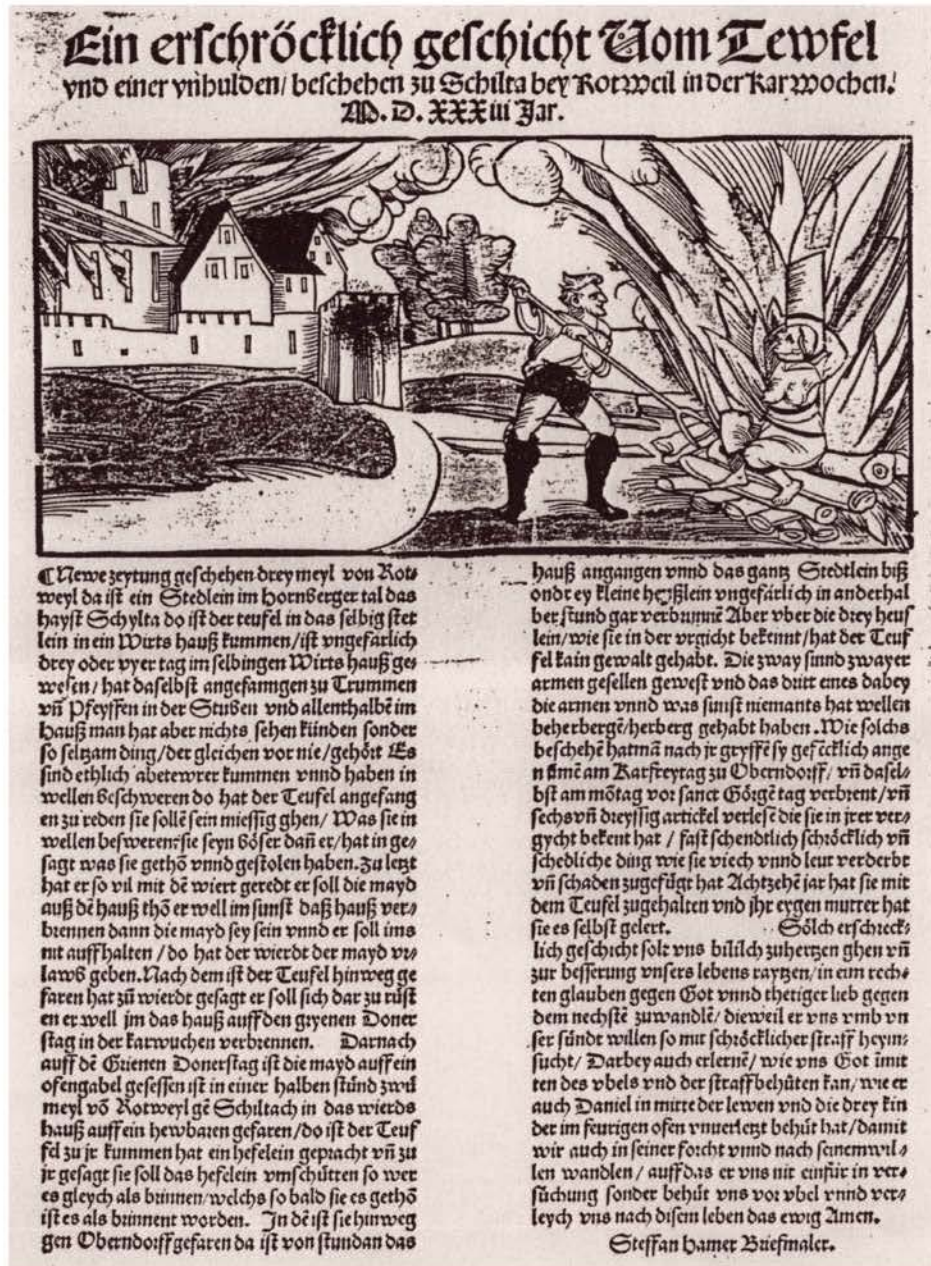 Ein erschröcklich geschicht Vom Tewfel
vnd einer vnhulden/ beschehen zu Schilta bey Rotweil in der Karwochen.
M. D. XXXiii Jar.
Newe zeytung geschehen drey meyl von Rot⸗
weyl da ist ein Stedlein im Hornberger tal das
hayst Schylta do ist der teufel in das selbig stet
lein in ein Wirts hauß kummen/ist vngefärlich
drey oder vyer tag im selbingen Wirts hauß ge⸗
wesen/ hat daselbst angefanngen zu Trummen
vñ Pfeyffen in der Stuben vnd allenthalbẽ im
hauß man hat aber nichts sehen künden sonder
so seltzam ding/der gleichen vor nie/gehört Es
sind ethlich abetewrer kummen vnnd haben in
wellen beschweren do hat der Teufel angefang
en zu reden sie sollẽ sein miessig ghen/ Was sie in
wellen besweren: sie seyn böser dañ er/hat in ge⸗
sagt was sie gethõ vnnd gestolen haben. Zu letzt
hat er so vil mit dẽ wiert geredt er soll die mayd
auß dẽ hauß thõ er well im sunst daß hauß ver⸗
brennen dann die mayd sey sein vnnd er soll ims
nit auffhalten / do hat der wierdt der mayd vr⸗
lawb geben. Nach dem ist der Teufel hinweg ge
faren hat zũ wierdt gesagt er soll sich dar zu rüst
en er well jm das hauß auff den gryenen Doner
stag in der karwuchen verbrennen. Darnach
auff dẽ Grienen Donerstag ist die mayd auff ein
ofengabel gesessen ist in einer halben stund zwũ
meyl võ Rotweyl gẽ Schiltach in das wierds
hauß auff ein hewbaren gefaren/do ist der Teuf
fel zu jr kummen hat ein hefelein gepracht vñ zu
jr gesagt sie soll das hefelein vmschütten so wer
es gleych als brinnen/welchs so bald sie es gethõ
ist es als brinnent worden. In dẽ ist sie hinweg
gen Oberndorff gefaren da ist von stundan das
hauß angangen vnnd das gantz Stedtlein biß
ondr ey kleine heußlein vngefärlich in anderhal
ber stund gar verbrunnẽ Aber vber die drey heuf
lein/wie sie in der vrgicht bekennt/hat der Teuf
fel kain gewalt gehabt. Die zway sinnd zwayer
armen gesellen gewest vnd das dritt eines dabey
die armen vnnd was sunst niemants hat wellen
beherbergẽ/herberg gehabt haben. Wie solchs
beschehẽ hat mã nach jr gryffẽ sy gefẽcklich ange
nõmẽ am Karfreytag zu Oberndorff/ vñ dasel⸗
bst am mõtag vor sanct Görgẽ tag verbrent/vñ
sechs vñ dreyssig artickel verlesẽ die sie in jrer ver⸗
gycht bekent hat / fast schendtlich schröcklich vñ
schedliche ding wie sie viech vnnd leut verderbt
vñ schaden zugefügt hat Achtzehẽ jar hat sie mit
dem Teufel zugehalten vnd jhr eygen mutter hat
sie es selbst gelert. Sölch erschreck⸗
lich geschicht solt vns bililch zuhertzen ghen vñ
zur besserung vnsers lebens raytzen/in eim rech⸗
ten glauben gegen Got vnnd thetiger lieb gegen
dem nechstẽ zuwandlẽ/ dieweil er vns vmb vn
ser sündt willen so mit schröcklicher straff heym⸗
sucht/ Darbey auch erlernẽ/ wie vns Got ĩmit
ten des vbels vnd der straff behüten kan/wie er
auch Daniel in mitte der lewen vnd die drey kin
der im feurigen ofen vnuerletzt behüt hat/damit
wir auch in seiner forcht vnnd nach seinem wil⸗
len wandlen / auff das er vns nit einfür in ver⸗
süchung sonder behüt vns vor vbel vnnd ver⸗
leych vns nach disem leben das ewig Amen.
Steffan Hamer Briefmaler.